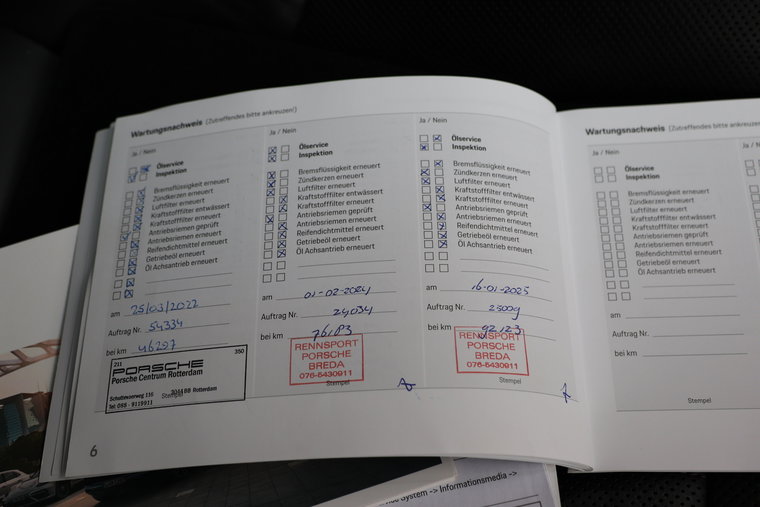 Wartungsnachweis (Zutreffendes bitte ankreuzen!)
Ja / Nein
Ölservice
Inspektion
Bremsflüssigkeit erneuert
Zündkerzen erneuert
Luftfilter erneuert
Kraftstofffilter entwässert
Kraftstofffilter erneuert
Antriebsriemen geprüft
Antriebsriemen erneuert
Reifendichtmittel erneuert
Getriebeöl erneuert
Öl Achsantrieb erneuert
am 25/03/2022
Auftrag Nr. 54334
bei km 46297
211 350
PORSCHE
Porsche Centrum Rotterdam
Stempel
6
Ja / Nein
Ölservice
Inspektion
Bremsflüssigkeit erneuert
Zündkerzen erneuert
Luftfilter erneuert
Kraftstofffilter entwässert
Kraftstofffilter erneuert
Antriebsriemen geprüft
Antriebsriemen erneuert
Reifendichtmittel erneuert
Getriebeöl erneuert
Öl Achsantrieb erneuert
am 01-02-2024
Auftrag Nr. 24034
bei km
RENNSPORT
PORSCHE
BREDA
076-5430911
Stempel
Ja / Nein
Ölservice
Inspektion
Bremsflüssigkeit erneuert
Zündkerzen erneuert
Luftfilter erneuert
Kraftstofffilter entwässert
Kraftstofffilter erneuert
Antriebsriemen geprüft
Antriebsriemen erneuert
Reifendichtmittel erneuert
Getriebeöl erneuert
Öl Achsantrieb erneuert
am 16-01-2025
Auftrag Nr. 25009
bei km
RENNSPORT
PORSCHE
BREDA
076-5430911
Stempel
Wartungsnachweis (Zutreffendes bitte ankreuzen
Ja / Nein
Ölservice
Inspektion
Bremsflüssigkeit erneuert
Zündkerzen erneuert
Luftfilter erneuert
Kraftstofffilter entwässert
Kraftstofffilter erneuert
Antriebsriemen geprüft
Antriebsriemen erneuert
Reifendichtmittel erneuert
Getriebeöl erneuert
Öl Achsantrieb erneuert
am
Auftrag Nr.
bei km
Stempel
Ja
am
Auf
bei
System -> Informationsmedia ->